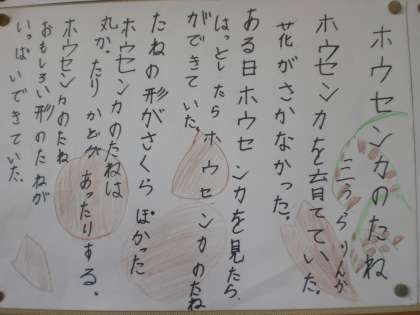 ホウセンカのたね
三うら りんか
ホウセンカを育てていた。
花がさかなかった。
ある日ホウセンカを見たら、
はっとしたら ホウセンカのたね
ができていた。
たねの形がさくらぽかった
ホウセンカのたねは
丸かったり かどがあったりする。
ホウセンカのたね
おもしろい形のたねが
いっぱいできていた。